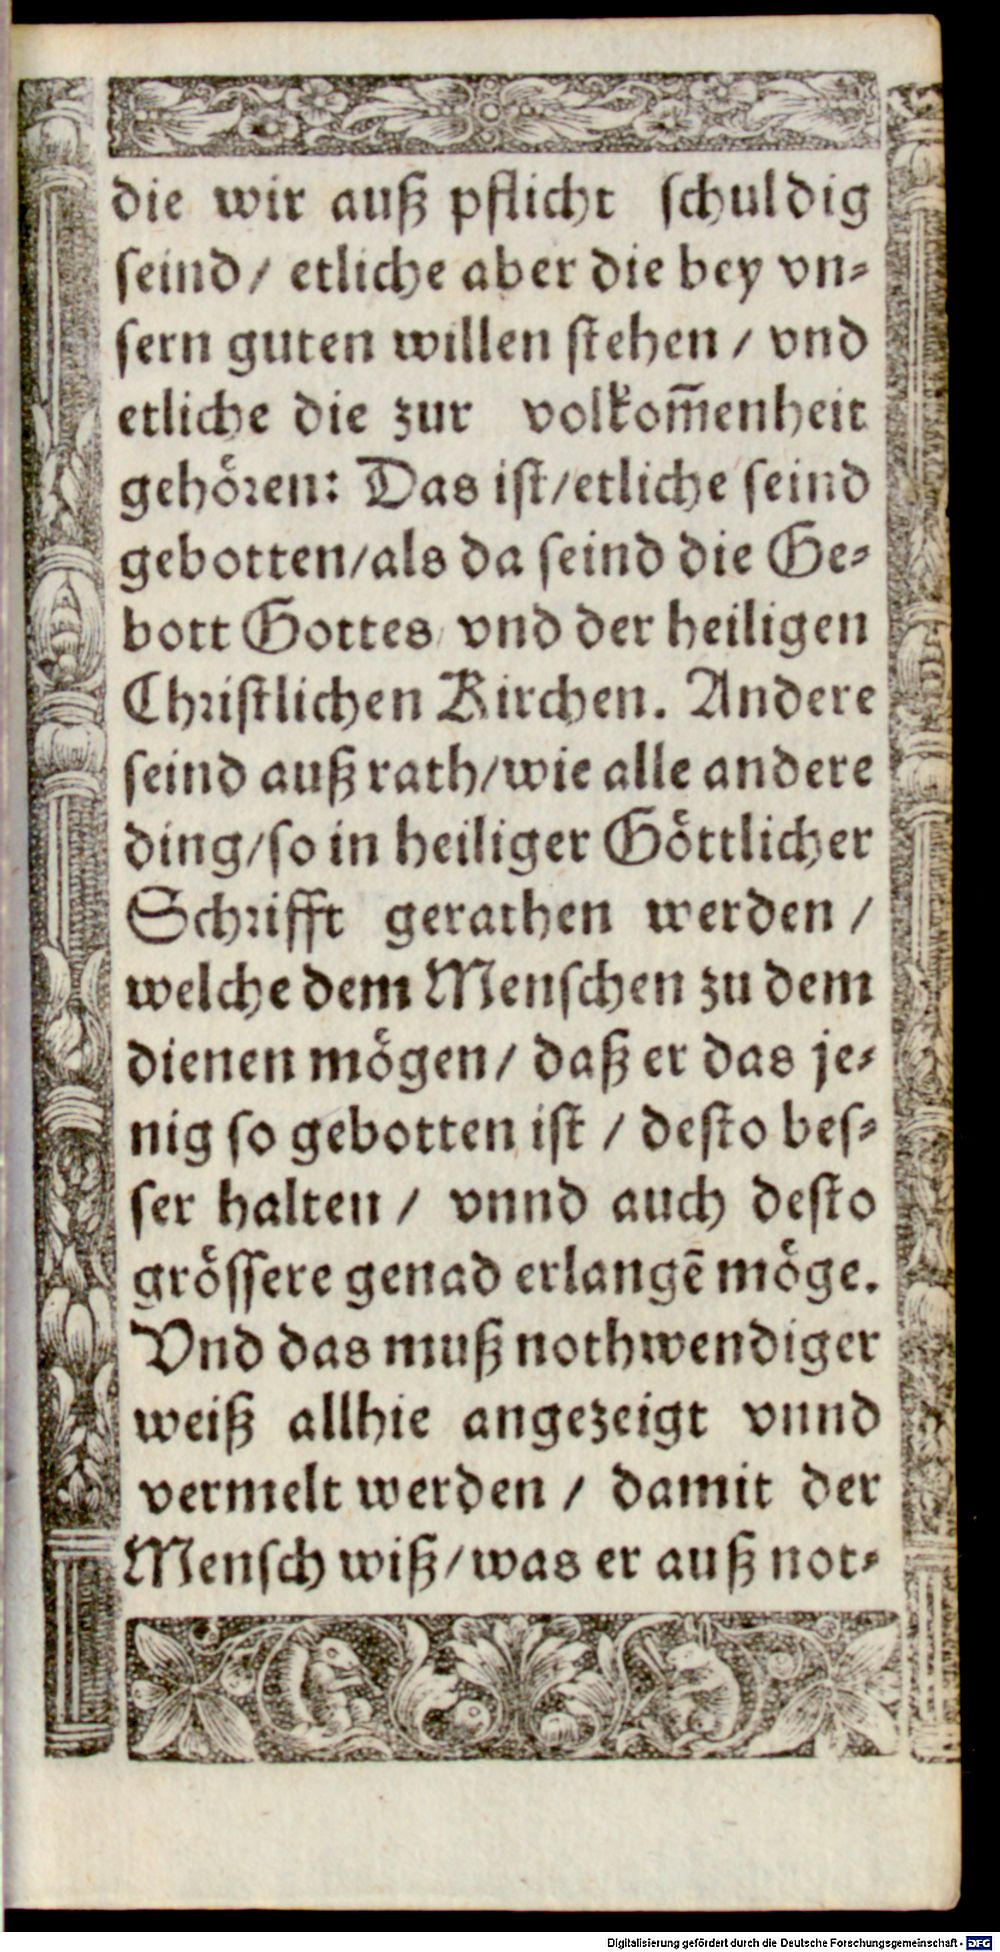 die wir auß pflicht schuldig
seind/ etliche aber die bey vn⸗
sern guten willen stehen / vnd
etliche die zur volkom̃enheit
gehoͤren: Das ist/etliche seind
gebotten/als da seind die Ge⸗
bott Gottes/ vnd der heiligen
Christlichen Kirchen. Andere
seind auß rath/wie alle andere
ding/so in heiliger Goͤttlicher
Schrifft gerathen werden /
welche dem Menschen zu dem
dienen moͤgen/ daß er das je⸗
nig so gebotten ist / desto bes⸗
ser halten / vnnd auch desto
groͤssere genad erlangẽ moͤge.
Vnd das muß nothwendiger
weiß allhie angezeigt vnnd
vermelt werden / damit der
Mensch wiß/was er auß not⸗
Digitalisierung gefördert durch die Deutsche Forschungsgemeinschaft - DFG